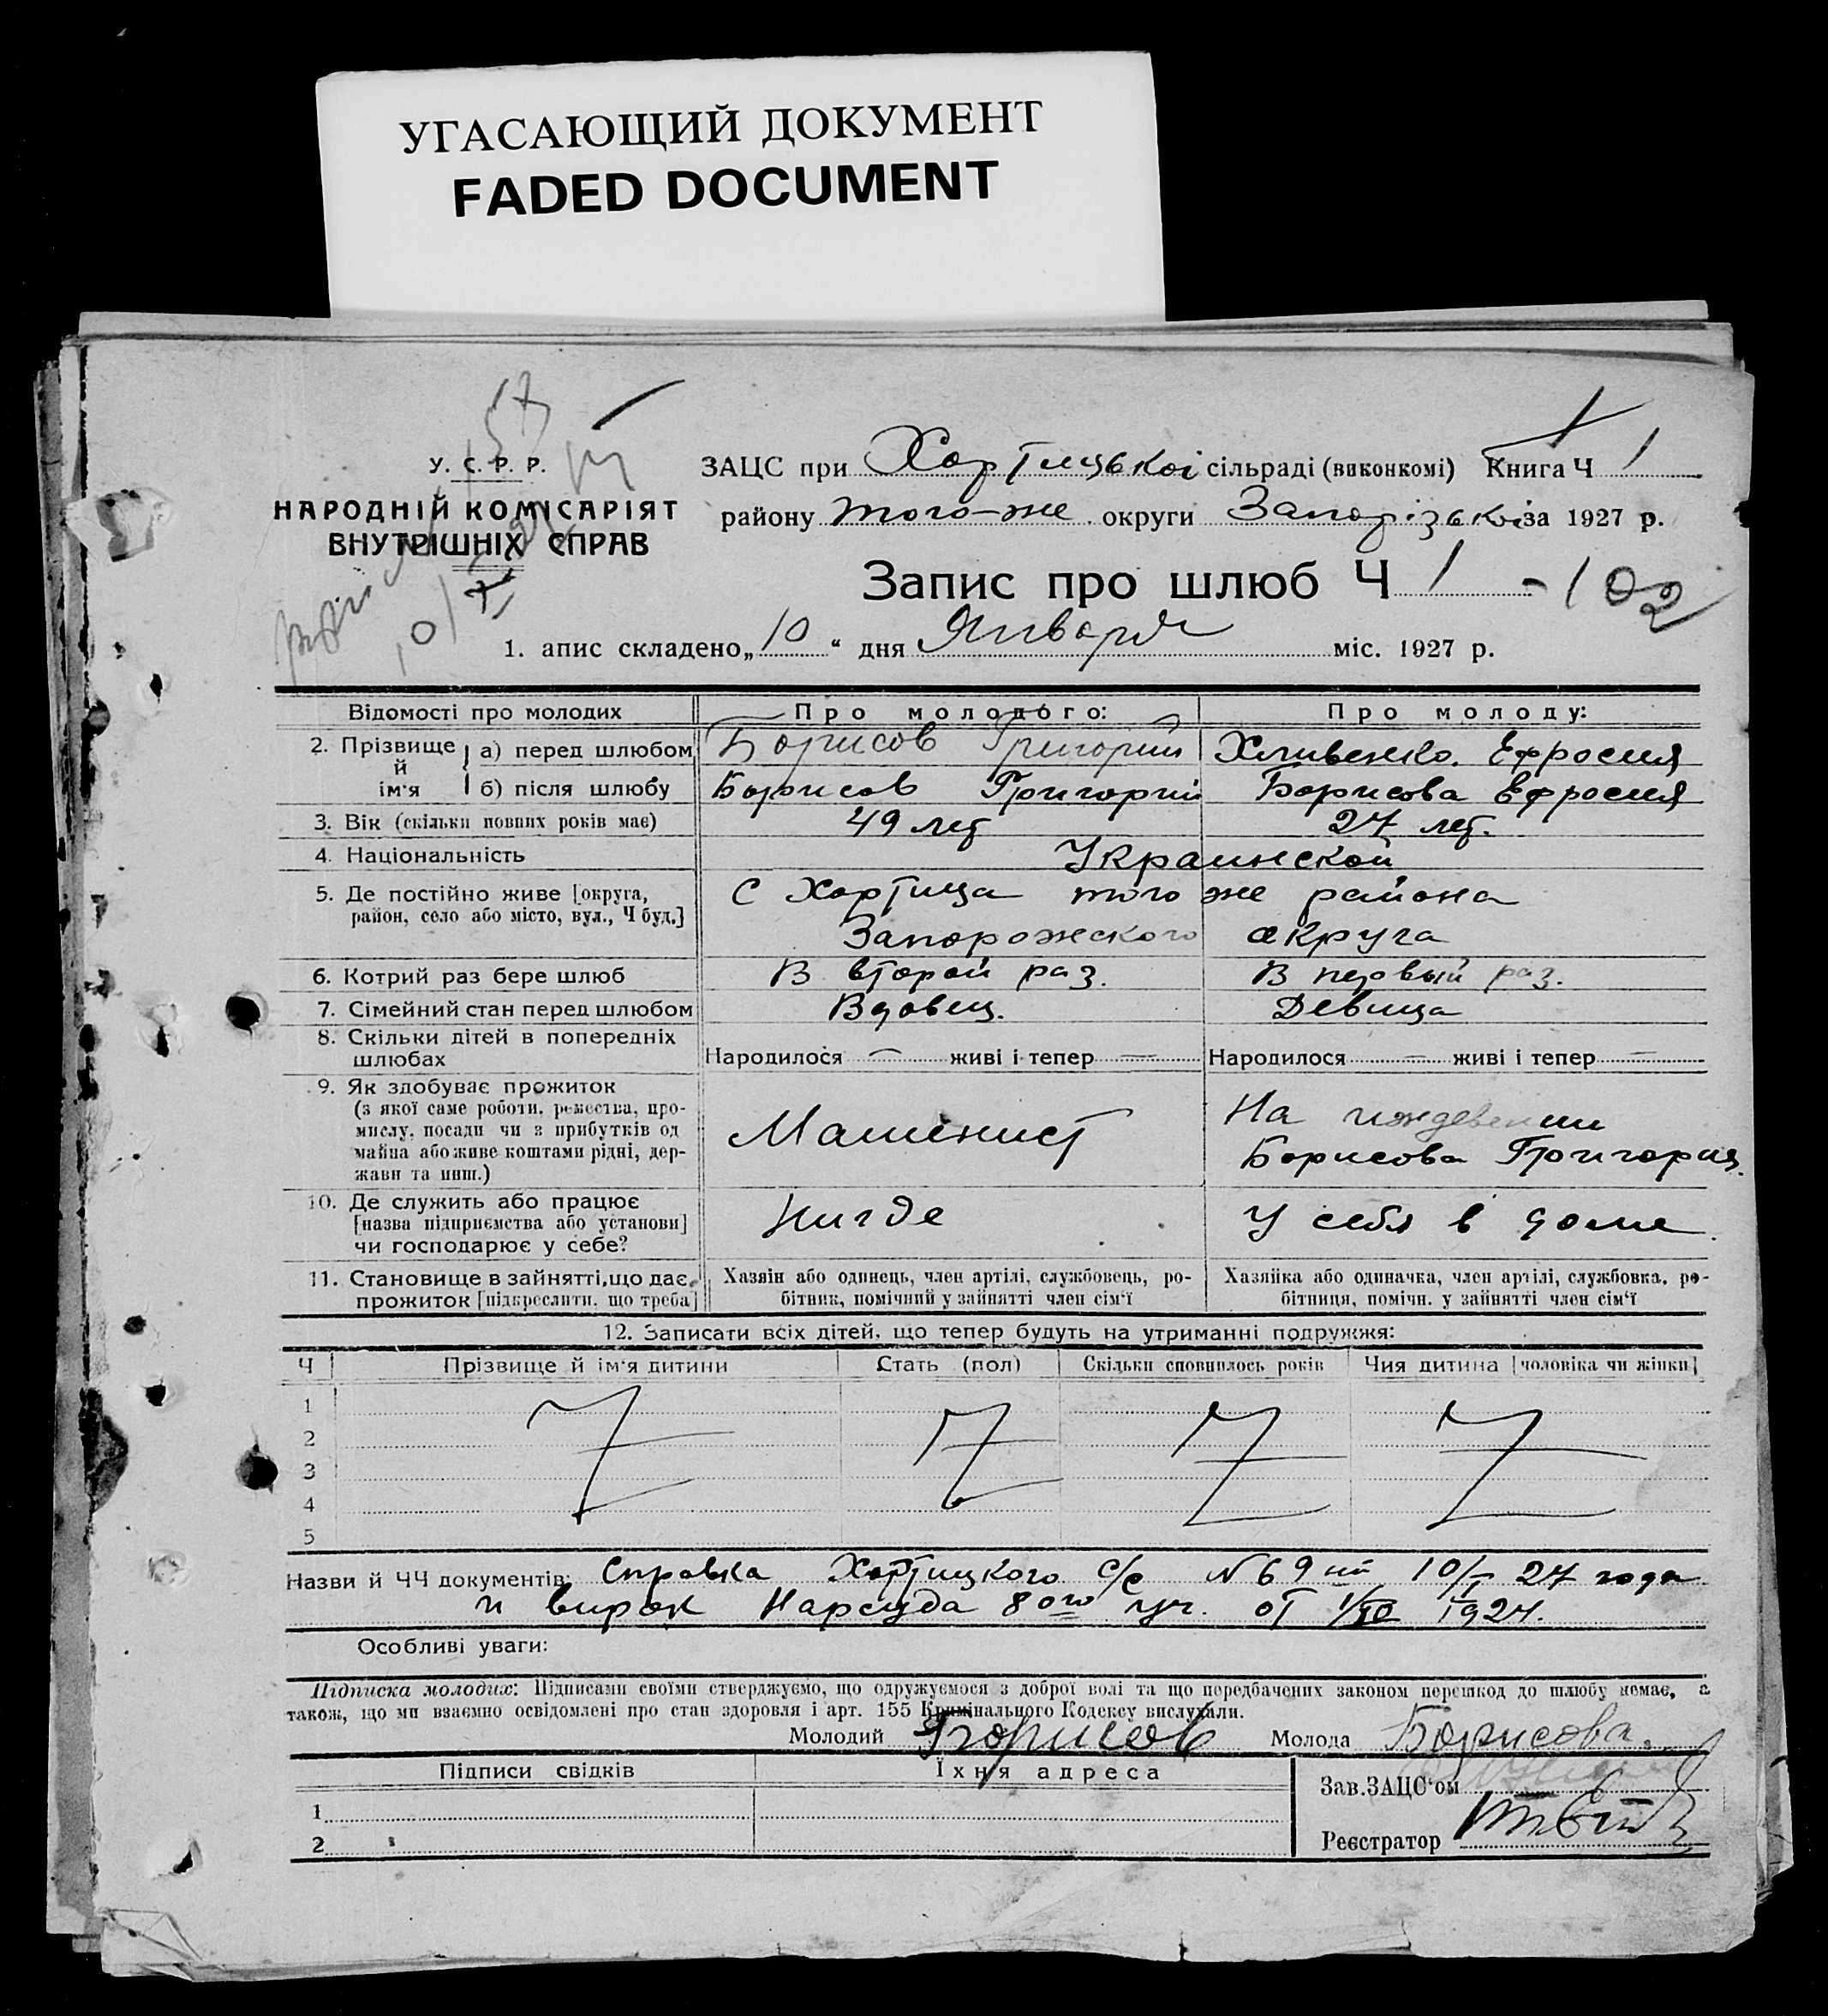 УГАСАЮЩИЙ ДОКУМЕНТ
FADED DOCUMENT
У. С. Р. Р.
НАРОДНІЙ КОМІСАРІЯТ
ВНУТРІШНІХ СПРАВ
ЗАЦС при Хортицькоі сільраді (виконкомі) Книга Ч 1
району того-же округи Запорізькоі за 1927 р.
Запис про шлюб Ч 1 - 102
1. апис складено „10“ дня Января міс. 1927 р.
Відомості про молодих Про молодого: Про молоду:
2. Прізвище й ім'я а) перед шлюбом Борисов Григорий Хливенко. Ефросия
б) після шлюбу Борисов Григорий Борисова Ефросия
3. Вік (скільки повних років має) 49 лет 27 лет.
4. Національність Украинской
5. Де постійно живе [округа, С Хортица того же района
район, село або місто, вул., Ч буд.] Запорожского округа
6. Котрий раз бере шлюб В второй раз. В первый раз.
7. Сімейний стан перед шлюбом Вдовец. Девица
8. Скільки дітей в попередніх
шлюбах Народилося — живі і тепер — Народилося — живі і тепер —
9. Як здобуває прожиток
(з якої саме роботи, ремества, про-
мислу, посади чи з прибутків од
майна або живе коштами рідні, дер-
жави та инш.) Машинист На иждевении
Борисова Григория.
10. Де служить або працює
[назва підприємства або установи]
чи господарює у себе? Нигде У себя в доме.
11. Становище в зайнятті, що дає Хазяїн або одинець, член артілі, службовець, ро- Хазяйка або одиначка, член артілі, службовка, ро-
прожиток [підкреслити, що треба] бітник, помічний у зайнятті член сім'ї бітниця, помічн. у зайнятті член сім'ї
12. Записати всіх дітей, що тепер будуть на утриманні подружжя:
Ч Прізвище й ім'я дитини Стать (пол) Скільки сповнилось років Чия дитина [чоловіка чи жінки]
1
2
3
4
5
Назви й ЧЧ документів: Справка Хортицкого с/с N 69 10/I 27 года
и вирок Нарсуда 8ого уч. от 1924.
Особливі уваги:
Підписка молодих: Підписами своїми стверджуємо, що одружуємося з доброї волі та що передбачених законом перешкод до шлюбу немає, а
також, що ми взаємно освідомлені про стан здоровля і арт. 155 Кримінального Кодексу вислухали.
Молодий Борисов Молода Борисова.
Підписи свідків Їхня адреса
Зав.ЗАЦС'ом
1
Реєстратор
2